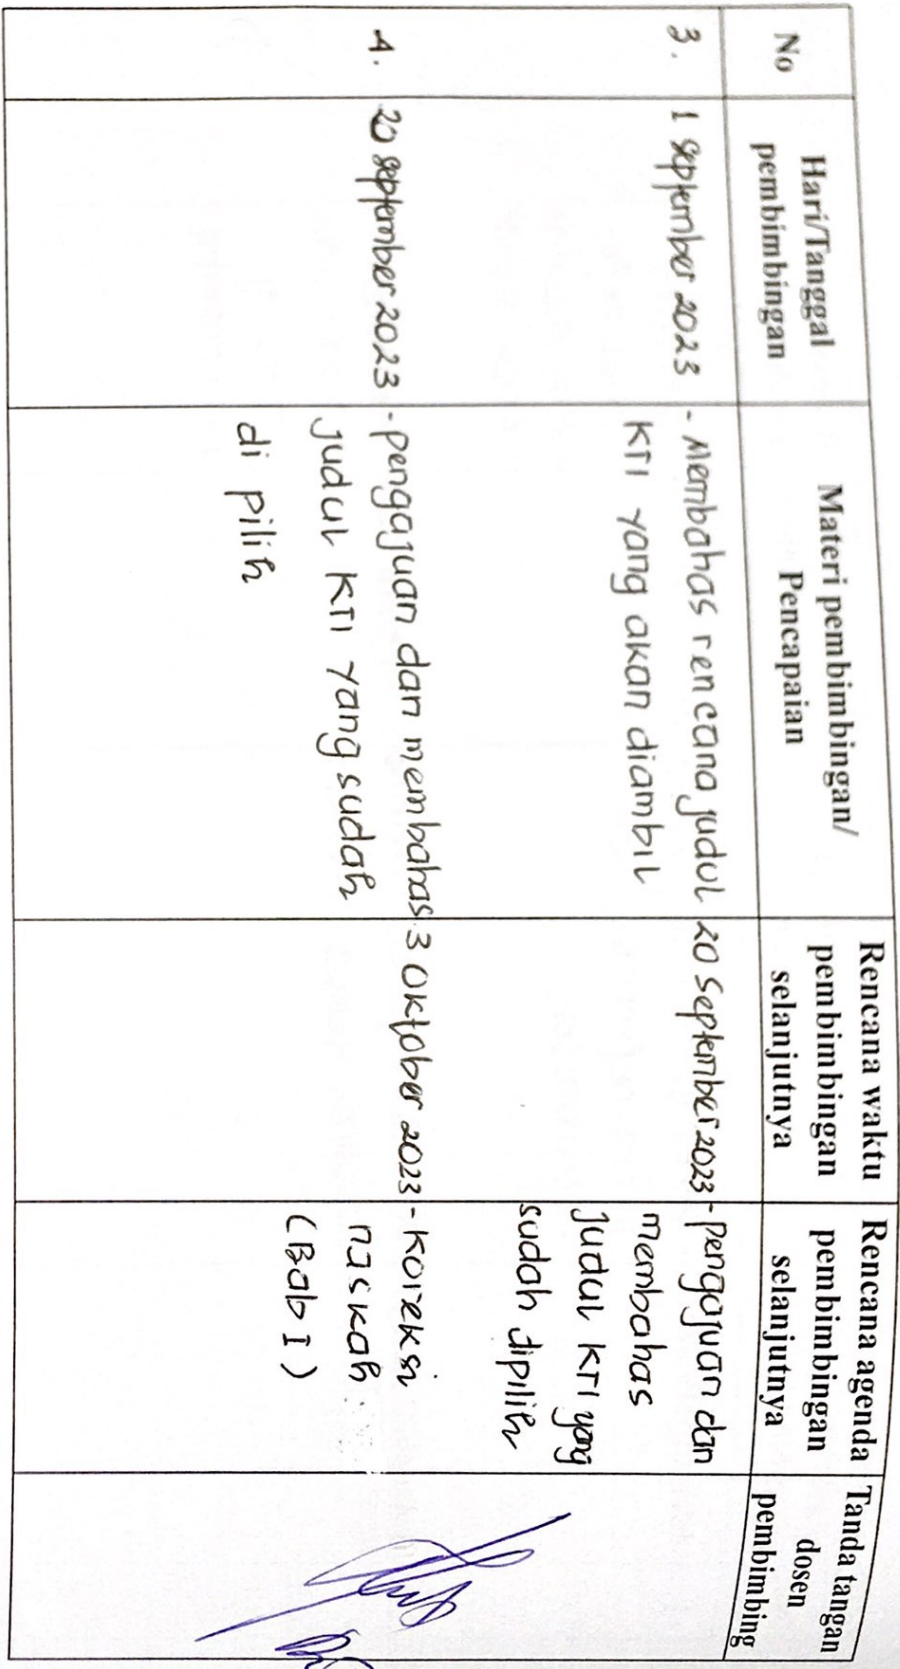 No
Hari/Tanggal
pembimbingan
Materi pembimbingan/
Pencapaian
Rencana waktu
pembimbingan
selanjutnya
Rencana agenda
pembimbingan
selanjutnya
Tanda tangan
dosen
pembimbing
3.
1 september 2023
- Membahas rencana judul
KTI yang akan diambil
20 September 2023
- pengajuan dan
membahas
judul KTI yang
sudah dipilih
4.
20 september 2023
- pengajuan dan membahas
judul KTI yang sudah
di pilih
3 Oktober 2023
- Koreksi
naskah
(Bab I)